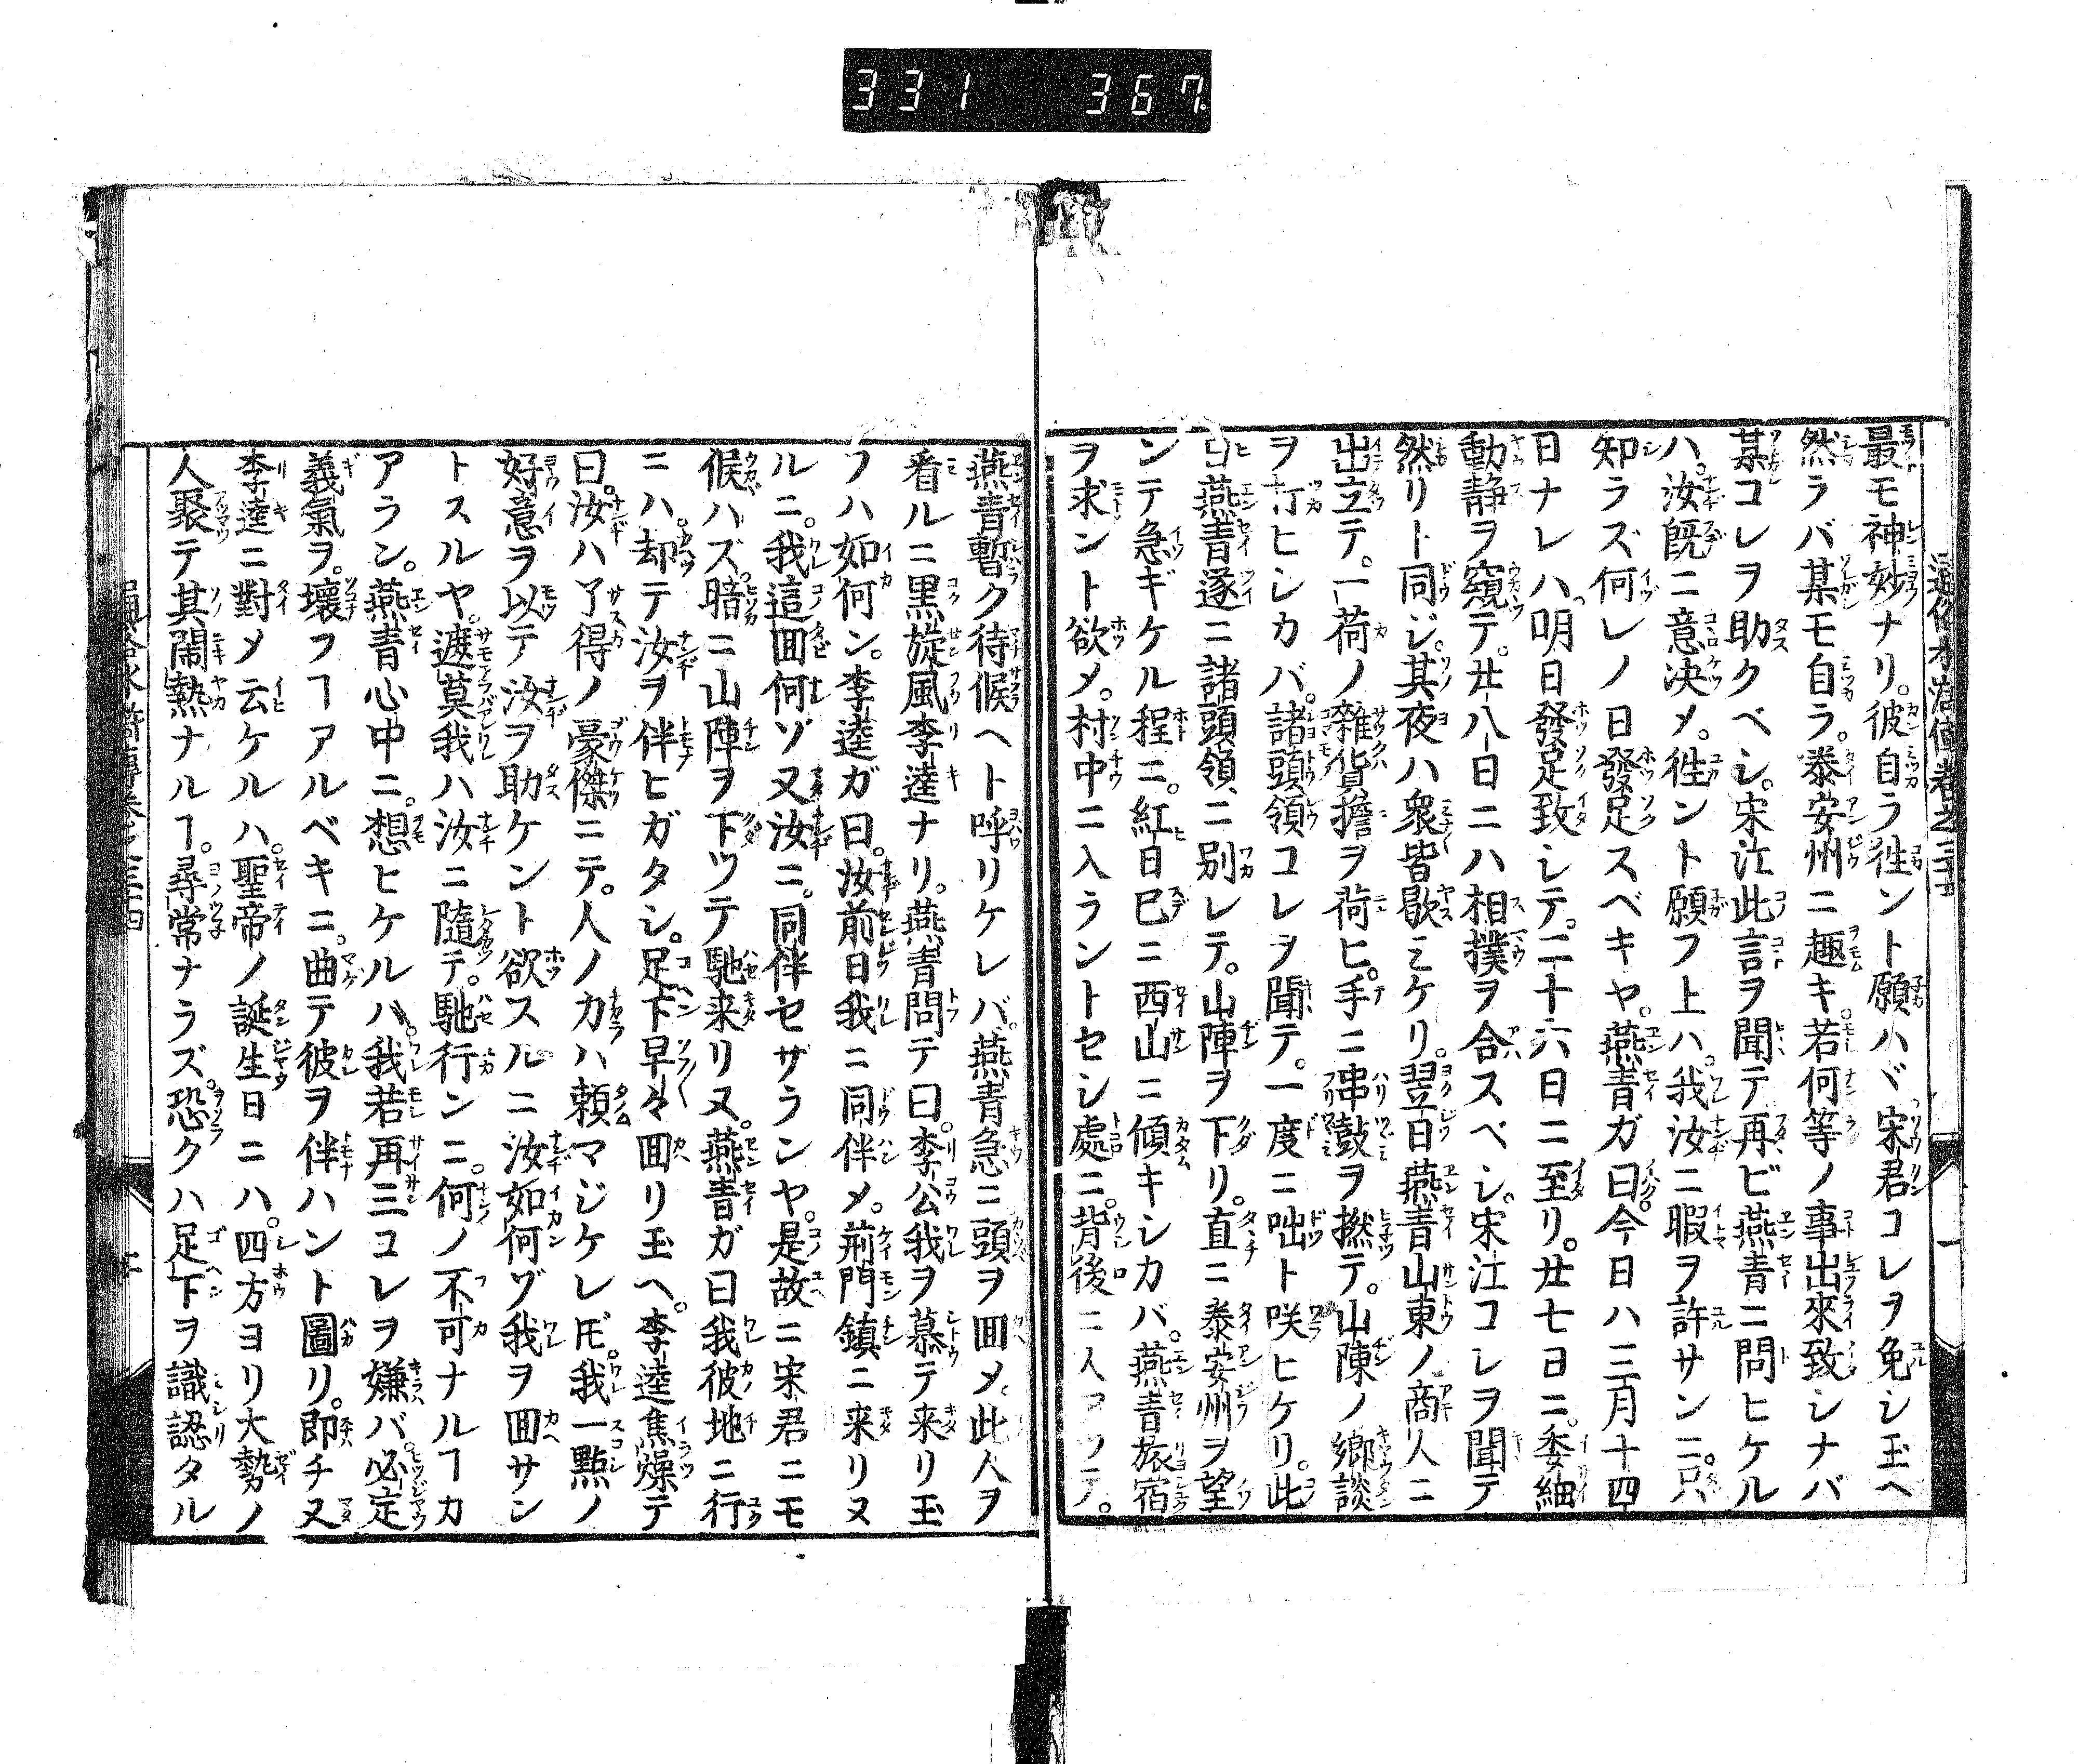 331 367
最モ神妙ナリ。彼自ラ徃ント願ハヾ宋君コレヲ免シ玉ヘ
然ラバ某モ自ラ。泰安州ニ趣キ。若何等ノ事出來致シナバ
某コレヲ助クベシ。宋江此言ヲ聞テ再ビ燕青ニ問ヒケル
ハ。汝既ニ意决メ。徃ント願フ上ハ。我汝ニ暇ヲ許サンニ。只
知ラズ何レノ日發足スベキヤ。燕青ガ曰。今日ハ三月十四
日ナレハ。明日發足致シテ。二十六日ニ至リ。廿七日ニ。委紬
動静ヲ窺テ。廿八日ニハ相撲ヲ合スベシ。宋江コレヲ聞テ
然リト同ジ。其夜ハ衆皆歇ミケリ。翌日燕青山東ノ商人ニ
出立テ。一荷ノ雜貨擔ヲ荷ヒ。手ニ串鼓ヲ撚テ。山陳ノ郷談
ヲ打ヒシカバ。諸頭領コレヲ聞テ。一度ニ咄ト咲ヒケリ。此
日燕青遂ニ諸頭領ニ別レテ。山陣ヲ下リ。直ニ泰安州ヲ望
ンテ急ギケル程ニ。紅日巳ニ西山ニ傾キシカバ。燕青旅宿
ヲ求ント欲メ。村中ニ入ラントセシ處ニ。背後ニ人ヨツテ。
燕青暫ク待候ヘト呼リケレバ。燕青急ニ頭ヲ囬メ。此人ヲ
看ルニ黒旋風李逵ナリ。燕青問テ曰。李公我ヲ慕テ来リ玉
フハ如何ン。李逵ガ曰。汝前日我ニ同伴メ。荊門鎮ニ来リヌ
ルニ。我這囬何ゾ又汝ニ。同伴セザランヤ。是故ニ宋君ニモ
候ハズ。暗ニ山陣ヲ下ツテ馳来リヌ。燕青ガ曰我彼地ニ行
ニハ。却テ汝ヲ伴ヒガタシ。足下早々囬リ玉ヘ。李逵焦燥テ
曰。汝ハ了得ノ豪傑ニテ。人ノカハ頼マジケレ𪜈。我一點ノ
好意ヲ以テ汝ヲ助ケント欲スルニ汝如何ゾ我ヲ囬サン
トスルヤ。遮莫我ハ汝ニ隨テ。馳行ンニ。何ノ不可ナルヿカ
アラン。燕青心中ニ。想ヒケルハ。我若再三コレヲ嫌バ。必定
義氣ヲ。壞フヿアルベキニ。曲テ彼ヲ伴ハント圖リ。即チ又
李逵ニ對メ云ケルハ。聖帝ノ誕生日ニハ。四方ヨリ大勢ノ
人聚テ其鬧熱ナルヿ。尋常ナラズ。恐クハ足下ヲ識認タル